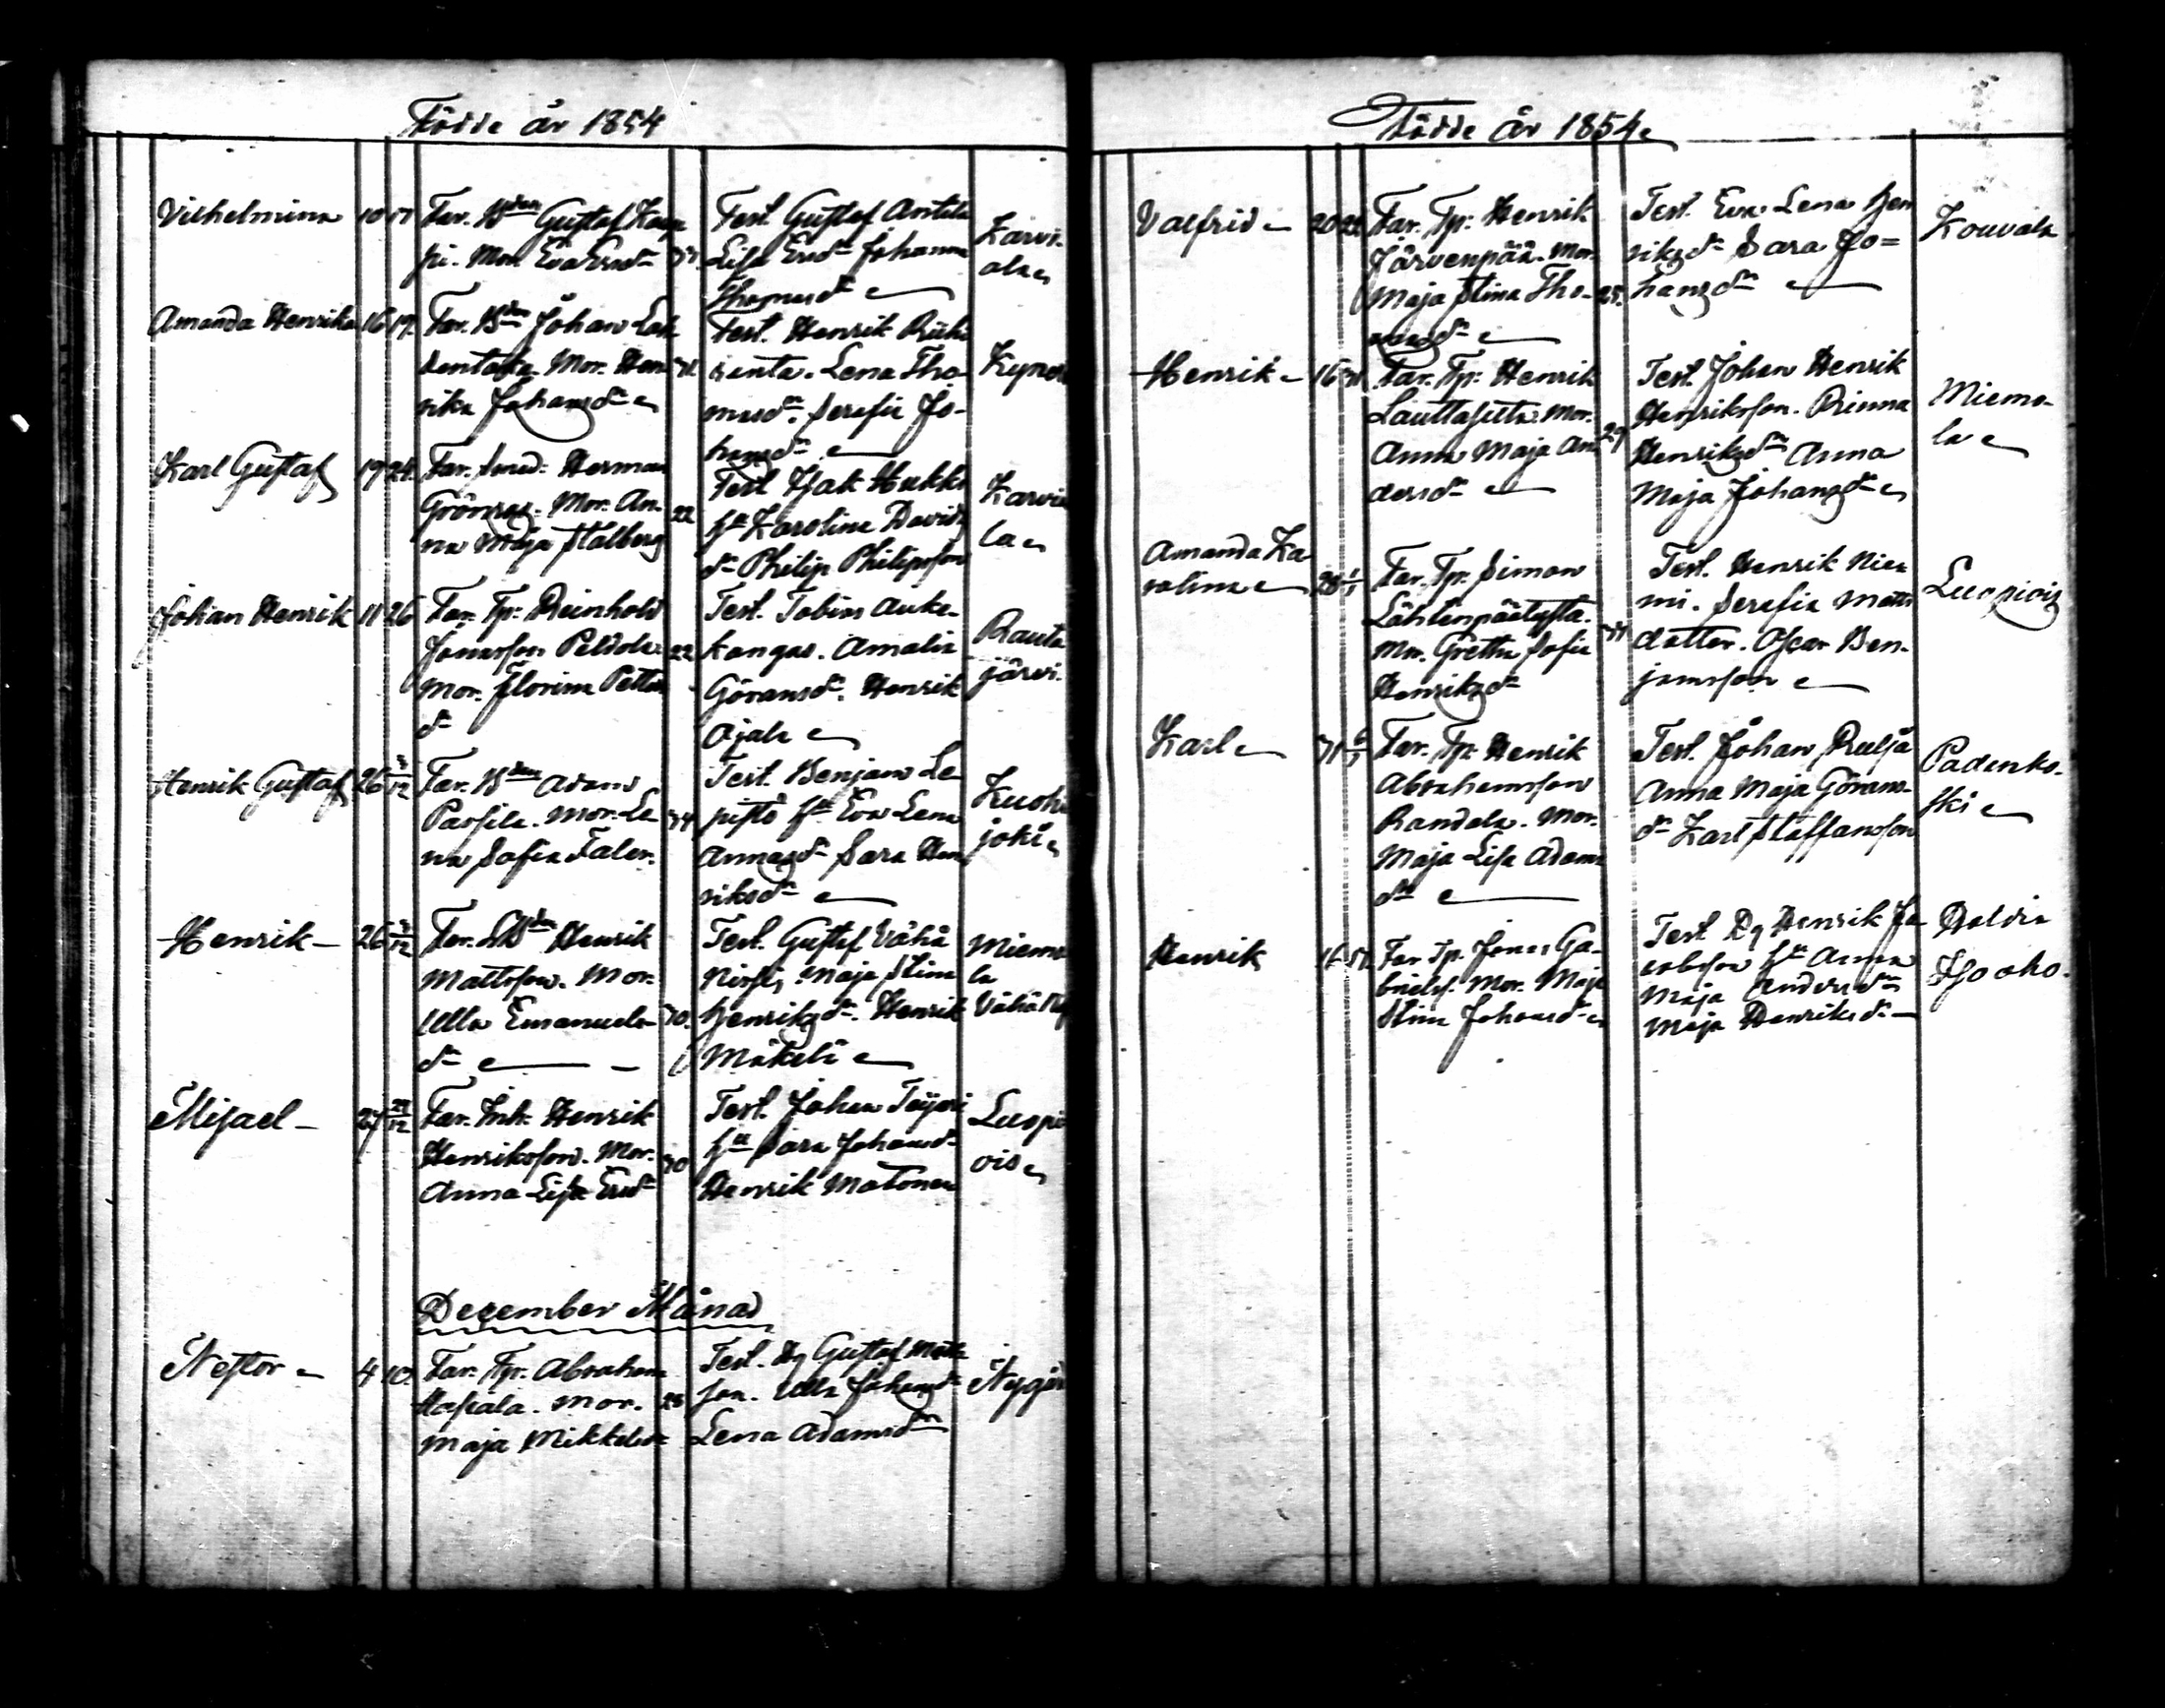 Födde år 1854
Vilhelmina 10 Far. Bden Gustaf Kaup
pi. Mor. Eva Ersdr
Test. Gustaf Antila
Lisa Ersdr Johanna
Thomasdr
Karvi-
ala
Amanda Henrika 16 19. Far. Bden Johan Lah
dentaka. Mor. Hen
rika Johansdr
Test. Henrik Riihi
ranta. Lena Tho-
masdr. Serafia Jo-
hansdr
Karl Gustaf 19 24. Far. Smed. Herman
Grönroos. Mor. An-
na Maja Stålberg
22
Test. Isak Hukki
hu Karolina Davids
dr Philip Philipsson
Karvia
la
Johan Henrik 11 26 Far. Tp. Reinhold
Jonasson Peldola
Mor. Florina Petters
dr
22
Test. Tobias Auke-
kangas. Amalia
Göransdr. Henrik
Ajala
Rauta
järvi.
Henrik Gustaf 26 3/12 Far. Bden Adam
Parfila. Mor. Le
na Sofia Falen.
34
Test. Benjam Le
pistö hu Eva Lena
Annasdr Sara Hen
riksdr
Kuoha
joki
Henrik 26 3/12 Far. Bden Henrik
Mattsson. Mor.
Ulla Emanuels
dr
30.
Test. Gustaf Vähä
Maja Stina
Henriksdr. Henrik
Mäkelä
Miemo
la
Misael 27 Far. Inh. Henrik
Henriksson. Mor.
Anna Lisa Ersdr
30
Test. Johan Teijeri
hu Sara Johansdr
Henrik Matonen
Luopi
ois
December Månad
Nestor 4 10. Far. Tp. Abraham
Hasiala. Mor.
Maja Mikkelsdr
Test. Dg Gustaf Matts
son. Ulla Johansdr
Lena Adamsdr
Födde år 1854
Valfrid 20 Far. Tp. Henrik
Järvenpää. Mor.
Maja Stina Tho-
masdr
Test. Eva Lena Hen
riksdr Sara Jo=
hansdr
Kouvala
Henrik 16 Far. Tp. Henrik
Lauttasilta. Mor.
Anna Maja An
dersdr
29
Test. Johan Henrik
Henriksson. Priuna
Henriksdr Anna
Maja Johansdr
Miemo-
la
Amanda Ka-
rolina 28 Far. Tp. Simon
Lähteenpäätysta.
Mor. Gretha Sofia
Henriksdr
Test. Henrik Nie
mi. Serafia Matts
dotter. Oscar Ben-
jamsson
Luopiois
Karl 31 6/1 Far. Tp. Henrik
Abrahamsson
Randala. Mor.
Maja Lisa Adams
dr
Test. Johan
Anna Maja Görans-
dr Karl Staffansson
Padasko-
ski
Henrik 16 Far. Tp. Jonas Ga-
brielss. Mor. Maja
Stina Johansdr
Test. Dg Henrik Ja
cobsson hu Anna
Maja Andersdr
Maja Henriksdr
Haldia
Isoaho.